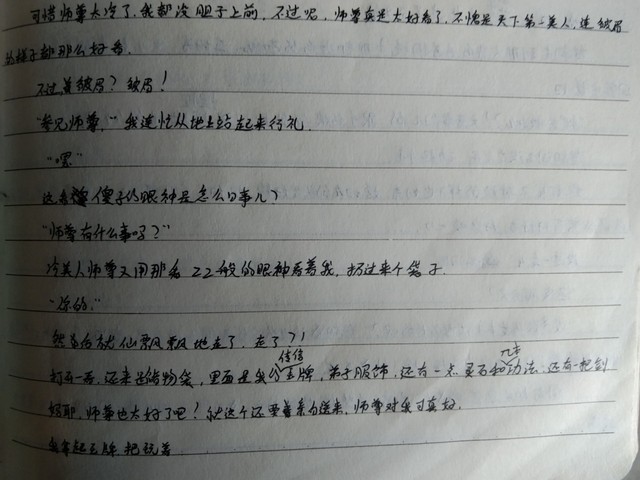 可惜师尊太冷了,我都没胆子上前,不过呢,师尊真是太好看了,不愧是天下第一美人,连皱眉
的样子都那么好看。
不过,等皱眉?皱眉!
“参见师尊。”我连忙从地上站起来行礼.
“嗯”
这看傻子的眼神是怎么回事儿?
“师尊有什么事吗?”
冷美人师尊又用那看zz一般的眼神看着我,扔过来个袋子.
“你的。”
然后就仙飘飘地走了,走了?!
打开一看,还来是储物袋,里面是我身份玉牌,弟子服饰,还有一点灵石和功法,还有一把剑
好耶,师尊也太好了吧!就这个还要亲自送来,师尊对我可真好.
我拿起玉牌把玩着